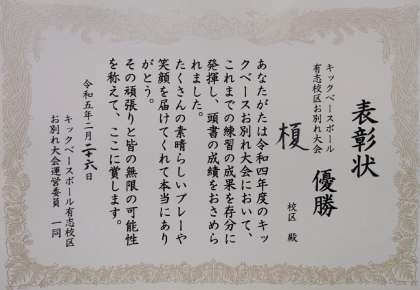 表彰状
キックベースボール
有志校区お別れ大会
優勝
榎
校区 殿
あなたがたは令和四年度のキッ
クベースお別れ大会において、
これまでの練習の成果を存分に
発揮し、頭書の成績をおさめら
れました。
たくさんの素晴らしいプレーや
笑顔を届けてくれて本当にあり
がとう。
その頑張りと皆の無限の可能性
を称えて、ここに賞します。
令和五年二月二十六日
キックベースボール有志校区
お別れ大会運営委員 一同